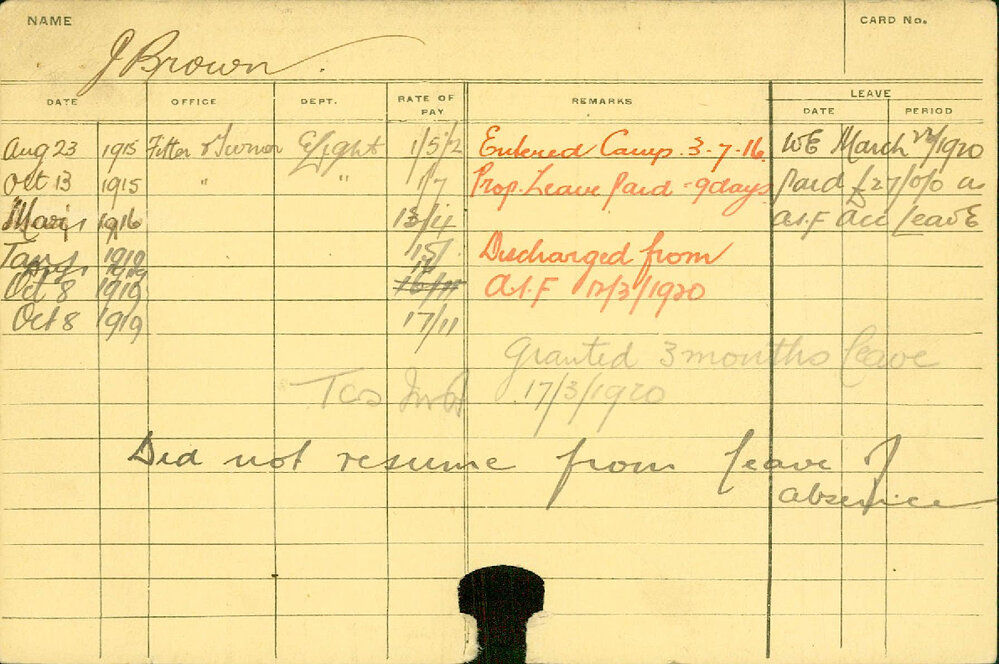 NAME CARD No.
J Brown.
DATE OFFICE DEPT. RATE OF PAY REMARKS LEAVE
DATE PERIOD
Aug 23 1915 Fitter & Turner E Light 1/5½ Entered Camp. 3-7-16. WE March 1920
Oct 13 1915 " " 1/7 Prop. Leave Paid - 9days Paid £27/0/0 as
1916 13/4 A.I.F Acc Leave
1919 15/. Discharged from
Oct 8 1919 16/11 A.I.F 12/3/1920
Oct 8 1919 17/11
Granted 3 months leave
17/3/1920
Did not resume from leave of
absence